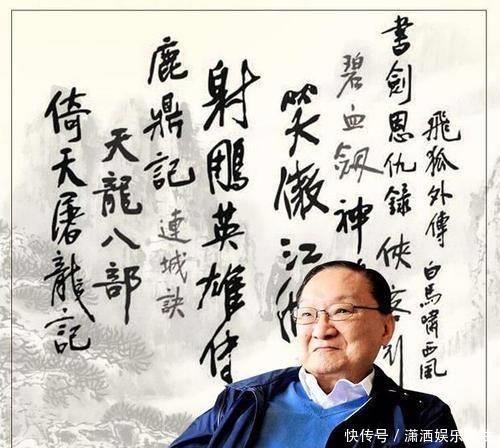 飛狐外傳
白馬嘯西風
書劍恩仇錄
俠客行
碧血劍
神
笑傲江湖
射鵰英雄傳
鹿鼎記
連城訣
天龍八部
倚天屠龍記
快传号/潇洒娱乐